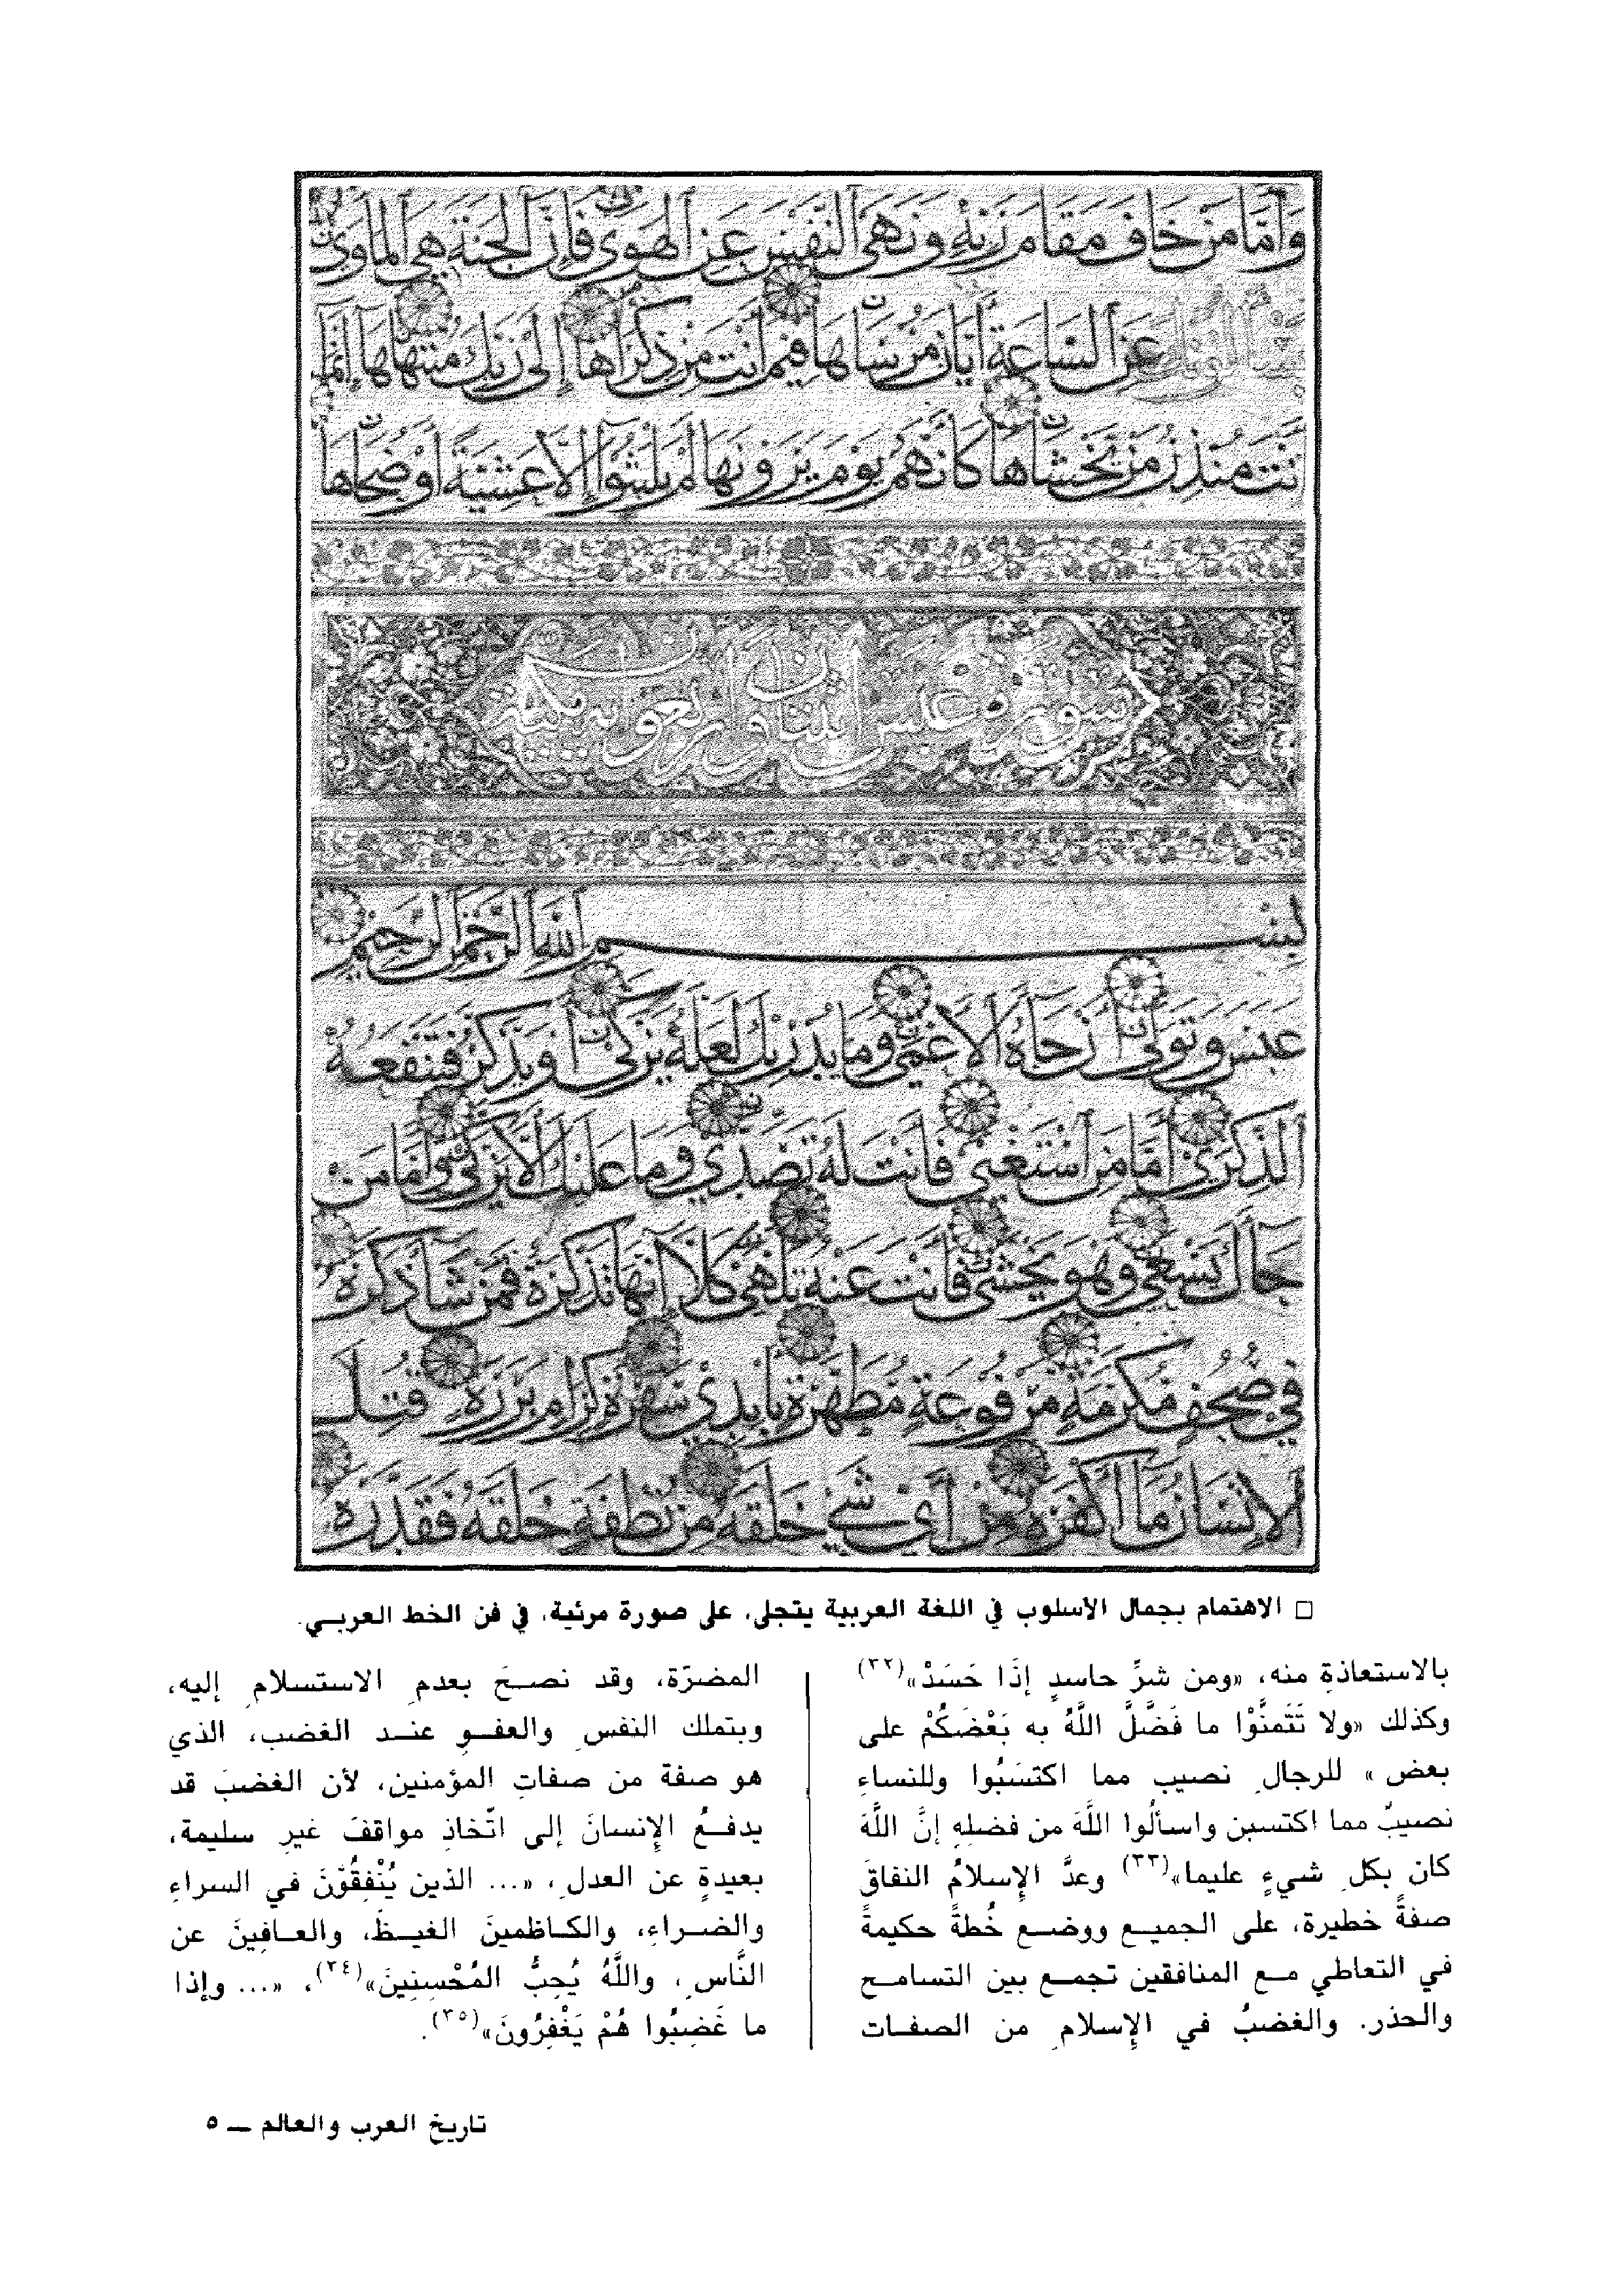 وأما من خاف مقام ربه ونهى النفس عن الهوى فإن الجنة هي المأوى
عن الساعة أيان مرساها فيم أنت من ذكراها إلى ربك منتهاها إنما
أنت منذر من يخشاها كأنهم يوم يرونها لم يلبثوا إلا عشية أو ضحاها
سورة عبس اثنتان وأربعون آية مكية
بسم الله الرحمن الرحيم
عبس وتولى أن جاءه الأعمى وما يدريك لعله يزكى أو يذكر فتنفعه
الذكرى أما من استغنى فأنت له تصدى وما عليك ألا يزكى وأما من
جاءك يسعى وهو يخشى فأنت عنه تلهى كلا إنها تذكرة فمن شاء ذكره
في صحف مكرمة مرفوعة مطهرة بأيدي سفرة كرام بررة قتل
الإنسان ما أكفره من أي شيء خلقه من نطفة خلقه فقدره
□ الاهتمام بجمال الأسلوب في اللغة العربية يتجلى، على صورة مرئية، في فن الخط العربي.
بالاستعاذةِ منه، «ومن شرِّ حاسدٍ إذَا حَسَدْ»(٣٢)
وكذلك «ولا تَتَمنَّوْا ما فَضَّلَ اللَّهُ به بَعْضَكُمْ على
بعض» للرجالِ نصيب مما اكتسَبُوا وللنساءِ
نصيبٌ مما اكتسبن واسألُوا اللَّهَ من فضلِهِ إنَّ اللَّهَ
كان بكلِ شيءٍ عليما»(٣٣) وعدَّ الإسلامُ النفاقَ
صفةً خطيرة، على الجميع ووضع خُطةً حكيمةً
في التعاطي مع المنافقين تجمع بين التسامح
والحذر. والغضبُ في الإسلامِ من الصفات
المضرّة، وقد نصحَ بعدمِ الاستسلامِ إليه،
وبتملك النفسِ والعفوِ عند الغضب، الذي
هو صفة من صفاتِ المؤمنين، لأن الغضبَ قد
يدفعُ الإنسانَ إلى اتّخاذِ مواقفَ غيرِ سليمة،
بعيدةٍ عن العدلِ، «... الذين يُنْفِقُوْنَ في السراءِ
والضراءِ، والكاظمينَ الغيظَ، والعافِينَ عن
النَّاسِ، واللَّهُ يُحِبُّ المُحْسِنِينَ»(٣٤)، «... وإذا
ما غَضِبُوا هُمْ يَغْفِرُونَ»(٣٥).
تاريخ العرب والعالم — ٥